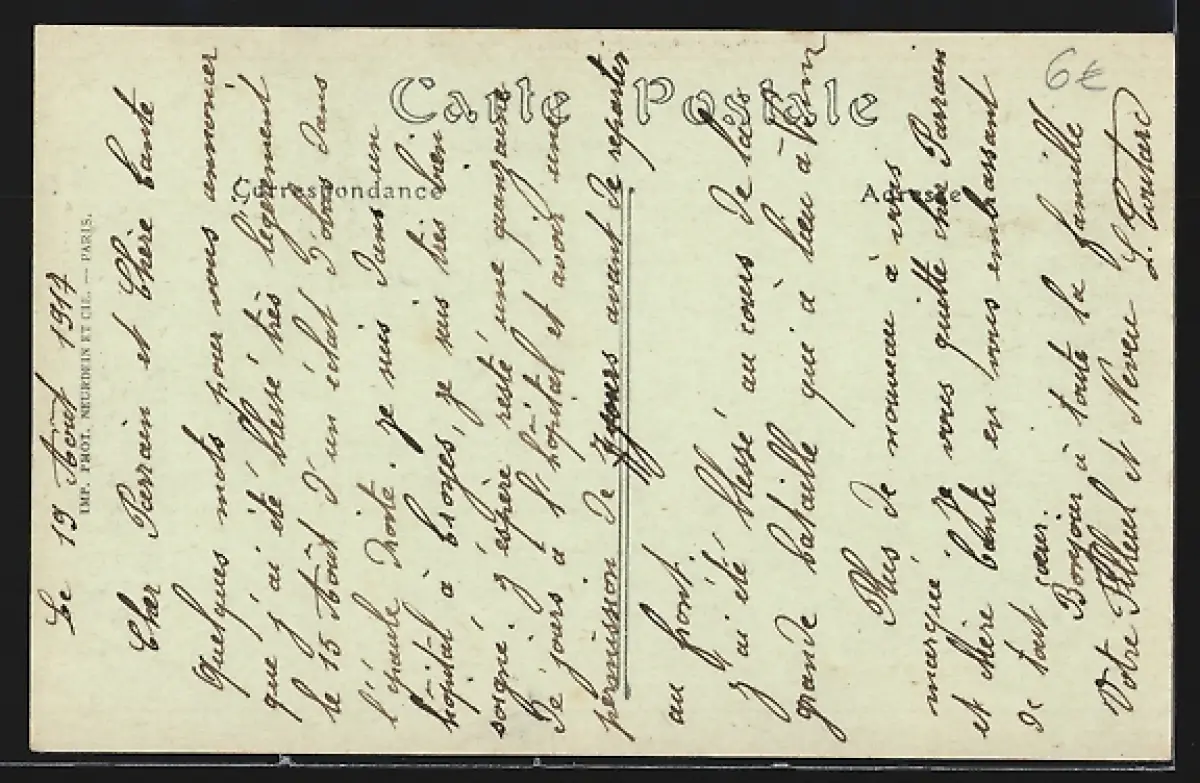 Carte Postale
Correspondance
Adresse
6€
IMP. PHOT. NEURDEIN ET CIE. — PARIS.
Le 19 Août 1917
Cher Parrain et Chère tante
Quelques mots pour vous annoncer
que j'ai été blessé très légèrement
le 15 Août d'un éclat d'obus dans
l'épaule droite. je suis dans un
hôpital à Broyes, je suis très bien
soigné. j'espère resté une quinzaine
de jours à l'hôpital et avoir une
permission de 7 jours avant de repartir
au front.
j'ai été blessé au cours de la
grande bataille qui à lieu à
Plus de nouveau à vous
marqué je vous quitte cher Parrain
et chère tante en vous embrassant
de tout cœur.
Bonjour à toute la famille
Votre Filleul et Neveu L.